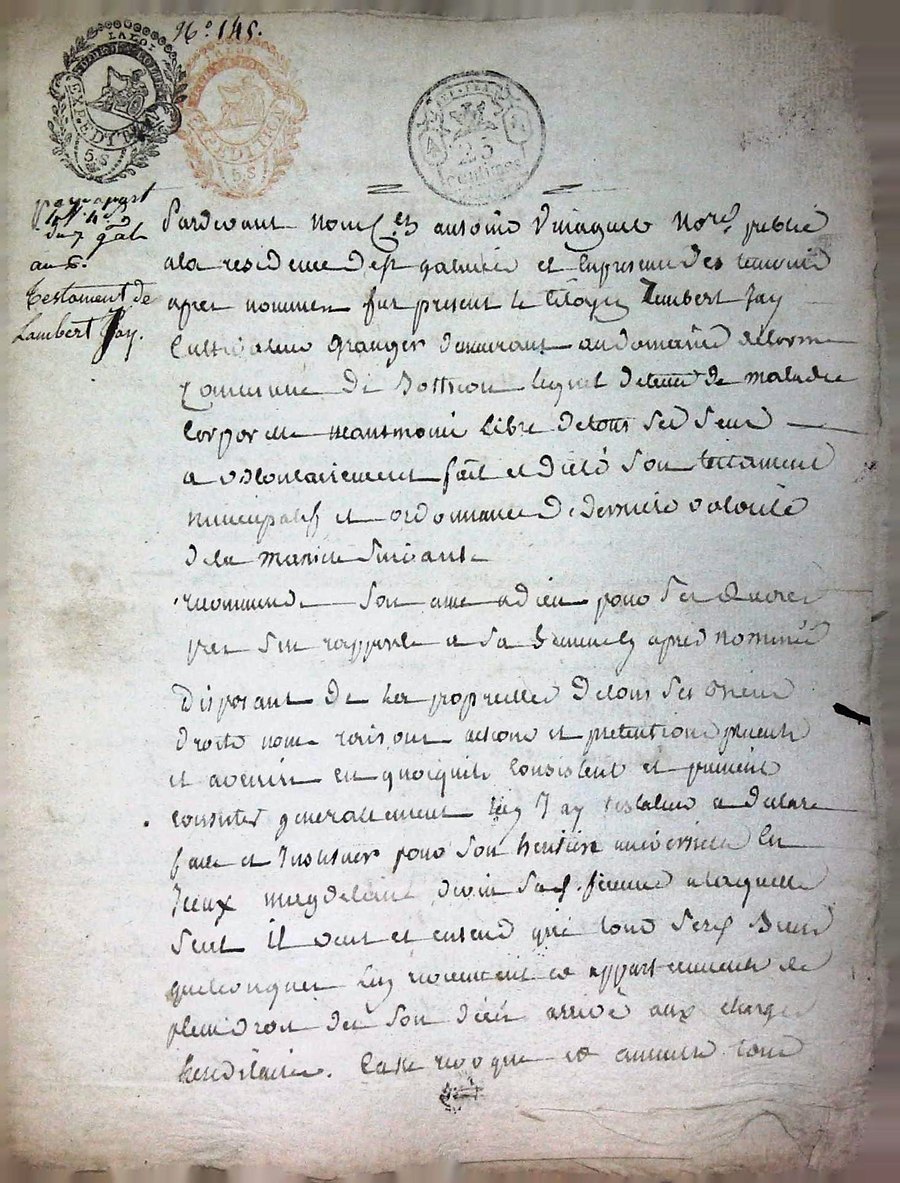 N.º 145.
LA LOI
EXPEDITION
5.S
EXPEDITION
5.S
25
centimes
du 7
an 6.
Testament de
Lambert Jay.
Pardevant nous antoine not.re public
ala residence de st galmier et en presence des temoins
apres nommes fut present le Citoyen Lambert Jay
Cultivateur Granger demeurant au domaine delorme
Commune de lequel detenu de maladie
Corporelle neantmoins libre detous ses sens
a volontairement fait et dicté son testament
et ordonnance de derniere volonté
dela maniere suivante
recommande son ame a dieu pour ses œuvres
pies s'en rapporte a sa apres nommée
Disposant de tous ses biens
droits noms raisons actions et pretentions presents
et avenir en quoiquils consistent et puissent
consister generallement led Jay testateur a declaré
faire et Instituer pour son heritiere universelle
magdelaine sa femme a laquelle
seule Il veut et entend que tous ses biens
quelconques luy appartiennent de
plein droit des son décès arrivé aux charges
hereditaires. Casse revoque et annulle tous